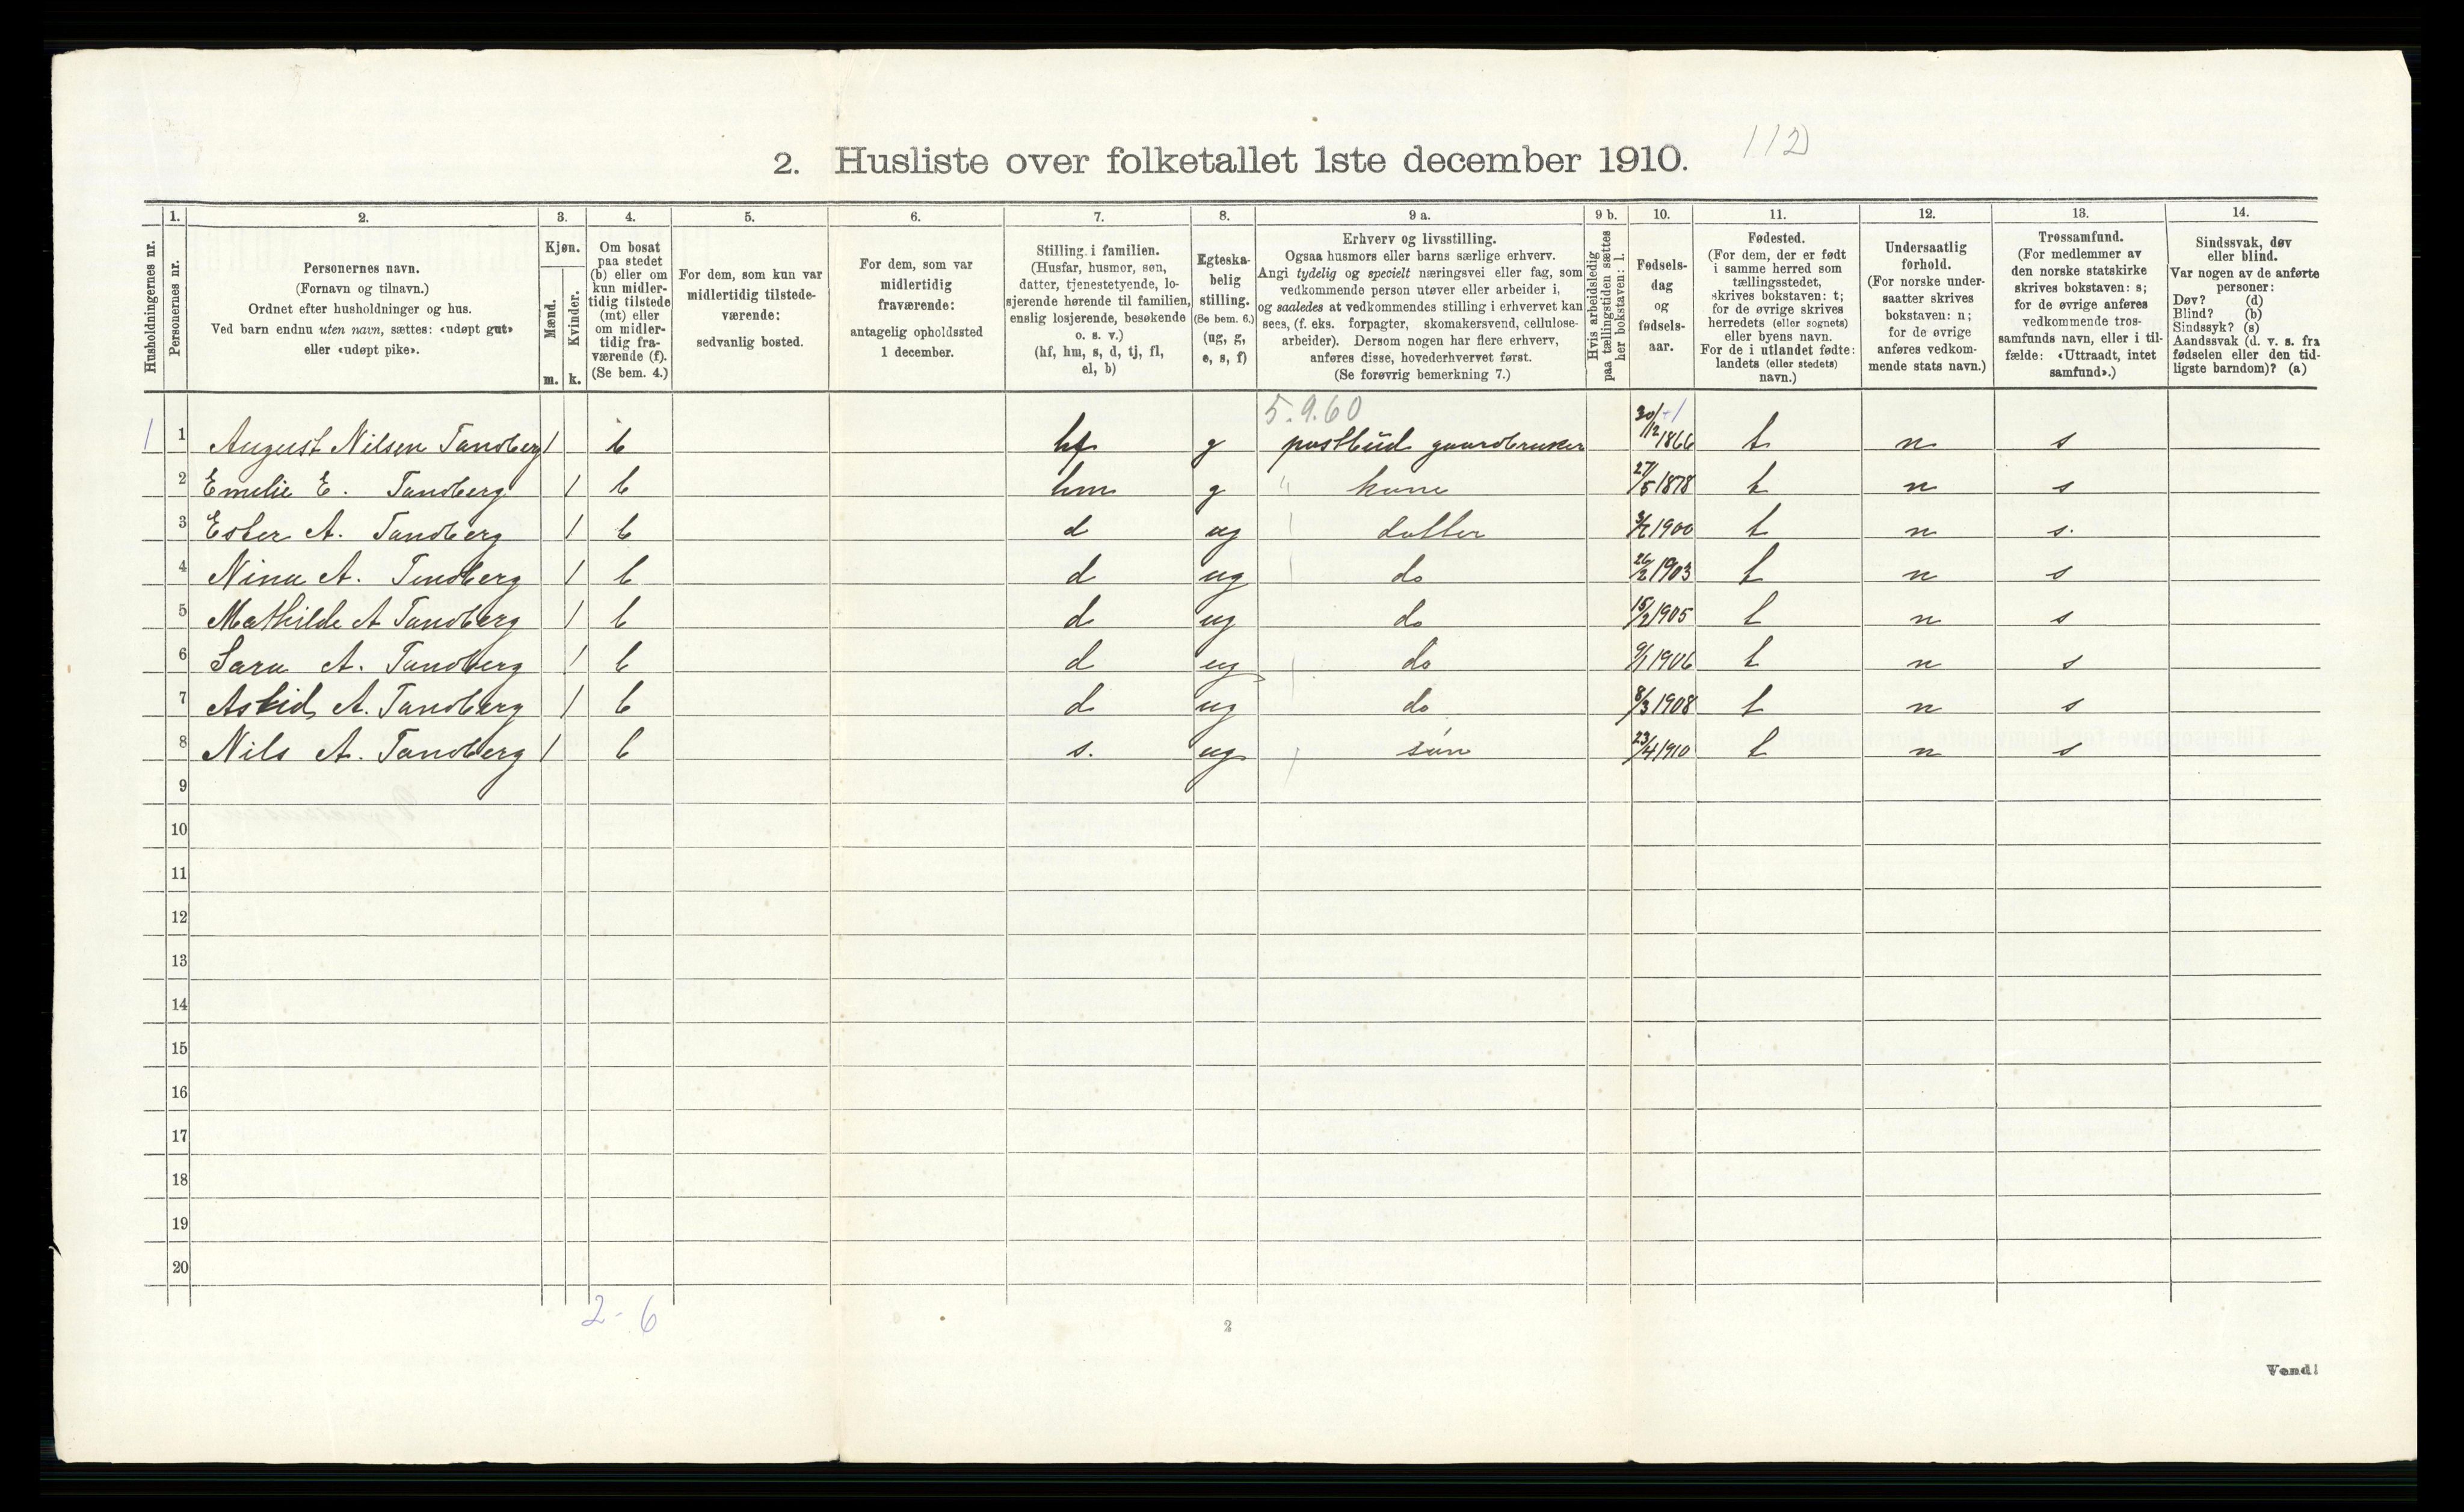 2. Husliste over folketallet 1ste december 1910.
112
Husholdningernes nr.
1.
Personernes nr.
2.
Personernes navn.
(Fornavn og tilnavn.)
Ordnet efter husholdninger og hus.
Ved barn endnu uten navn, sættes: «udøpt gut»
eller «udøpt pike».
3.
Kjøn.
Mænd.
Kvinder.
m. k.
4.
Om bosat
paa stedet
(b) eller om
kun midler-
tidig tilstede
(mt) eller
om midler-
tidig fra-
værende (f).
(Se bem. 4.)
5.
For dem, som kun var
midlertidig tilstede-
værende:
sedvanlig bosted.
6.
For dem, som var
midlertidig
fraværende:
antagelig opholdssted
1 december.
7.
Stilling i familien.
(Husfar, husmor, søn,
datter, tjenestetyende, lo-
sjerende hørende til familien,
enslig losjerende, besøkende
o. s. v.)
(hf, hm, s, d, tj, fl,
el, b)
8.
Egteska-
belig
stilling.
(Se bem. 6.)
(ug, g,
e, s, f)
9 a.
Erhverv og livsstilling.
Ogsaa husmors eller barns særlige erhverv.
Angi tydelig og specielt næringsvei eller fag, som
vedkommende person utøver eller arbeider i,
og saaledes at vedkommendes stilling i erhvervet kan
sees, (f. eks. forpagter, skomakersvend, cellulose-
arbeider). Dersom nogen har flere erhverv,
anføres disse, hovederhvervet først.
(Se forøvrig bemerkning 7.)
9 b.
Hvis arbeidsledig
paa tællingstiden sættes
her bokstaven: l.
10.
Fødsels-
dag
og
fødsels-
aar.
11.
Fødested.
(For dem, der er født
i samme herred som
tællingsstedet,
skrives bokstaven: t;
for de øvrige skrives
herredets (eller sognets)
eller byens navn.
For de i utlandet fødte:
landets (eller stedets)
navn.)
12.
Undersaatlig
forhold.
(For norske under-
saatter skrives
bokstaven: n;
for de øvrige
anføres vedkom-
mende stats navn.)
13.
Trossamfund.
(For medlemmer av
den norske statskirke
skrives bokstaven: s;
for de øvrige anføres
vedkommende tros-
samfunds navn, eller i til-
fælde: «Uttraadt, intet
samfund».)
14.
Sindssvak, døv
eller blind.
Var nogen av de anførte
personer:
Døv? (d)
Blind? (b)
Sindssyk? (s)
Aandssvak (d. v. s. fra
fødselen eller den tid-
ligste barndom)? (a)
5.9.60
1 1 August Nilsen Tandberg 1 b hf g postbud gaardbruker 30/12 1866 t n s
2 Emelie E. Tandberg 1 b hm g " kone 27/5 1878 t n s
3 Ester A. Tandberg 1 b d ug datter 3/2 1900 t n s.
4 Nina A. Tandberg 1 b d ug do 26/2 1903 t n s
5 Mathilde A Tandberg 1 b d ug do 15/2 1905 t n s
6 Sara A. Tandberg 1 b d ug do 9/1 1906 t n s
7 Astrid A. Tandberg 1 b d ug do 8/3 1908 t n s
8 Nils A. Tandberg 1 b s. ug sön 23/4 1910 t n s
9
10
11
12
13
14
15
16
17
18
19
20
2-6
2
Vend!